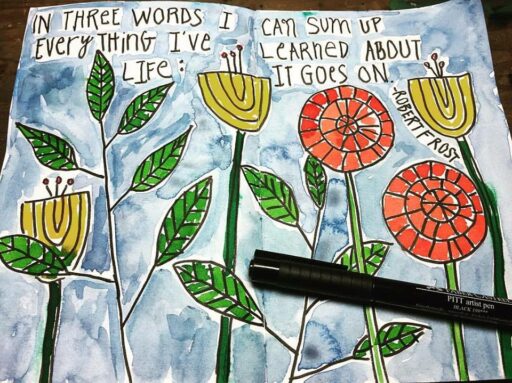 IN THREE WORDS I CAN SUM UP
EVERYTHING I'VE LEARNED ABOUT
LIFE: IT GOES ON.
-ROBERT FROST
PITT artist pen
BLACK 199